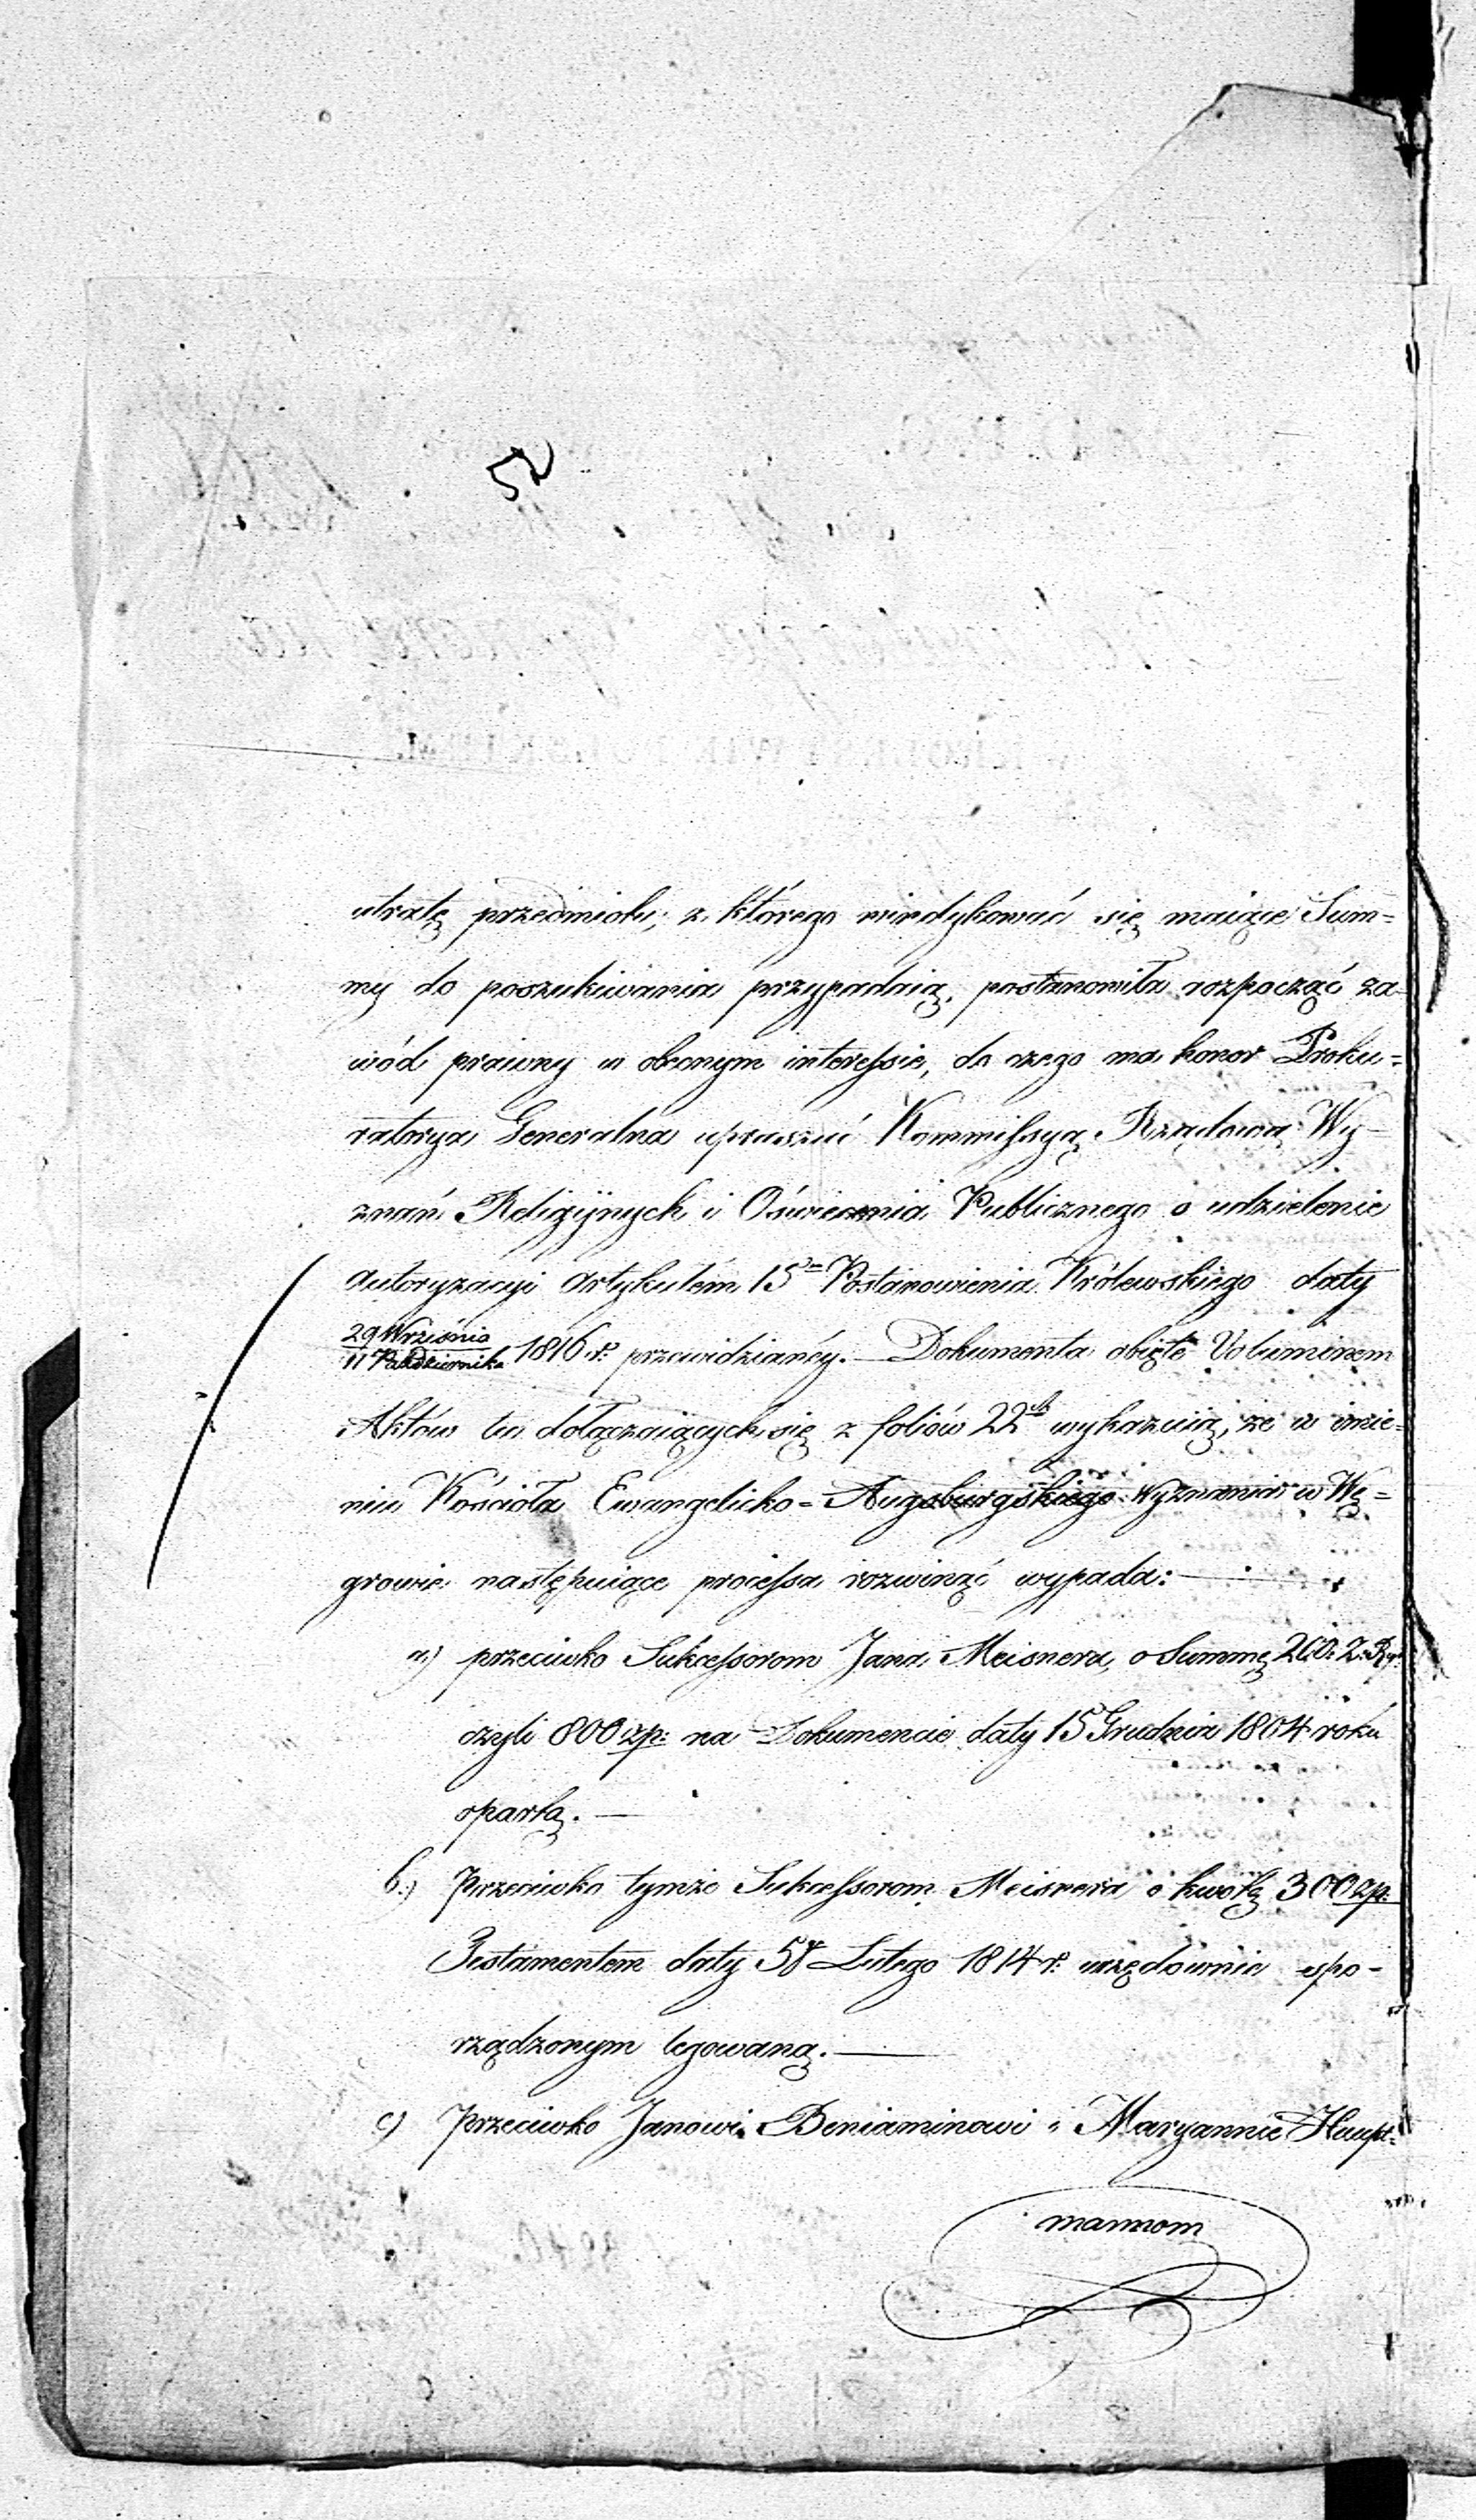 52
utratę przedmiotu, z którego windykować się maiące Sum=
my do poszukiwania przypadaią, postanowiła rozpocząć za
wód prawny w obecnym interessie, do czego ma honor Proku=
ratorya Generalna upraszać Kommissyą Rządową Wy-
znań Religijnych i Oświecenia Publicznego o udzielenie
autoryzacyi Artykułem 15m Postanowienia Królewskiego daty
29 Września
11 Października 1816 r. przewidzianéy. — Dokumenta obięte Voluminem
Aktów tu dołączaiących się z foliów 22ch wykazuią, że w imie=
niu Kościoła Ewangelicko=Augsburgskiego Wyznania w Wę=
growie następuiące processa rozwinąć wypada: —
a.) przeciwko Sukcessorom Jana Meisnera, o Summę
czyli 800 zp: na Dokumencie daty 15 Grudnia 1804 roku
opartą. —
b.) Przeciwko tymże Sukcessorom Meisnera o kwotę 300 zp:
Testamentem daty Lutego 1814 r. urzędownie spo-
rządzonym legowaną. —
c) Przeciwko Janowi Beniaminowi i Maryannie Haupt=
mannom